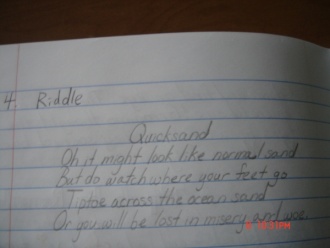 4. Riddle
Quicksand
Oh it might look like normal sand
But do watch where your feet go
Tiptoe across the ocean sand
Or you will be lost in misery and woe.